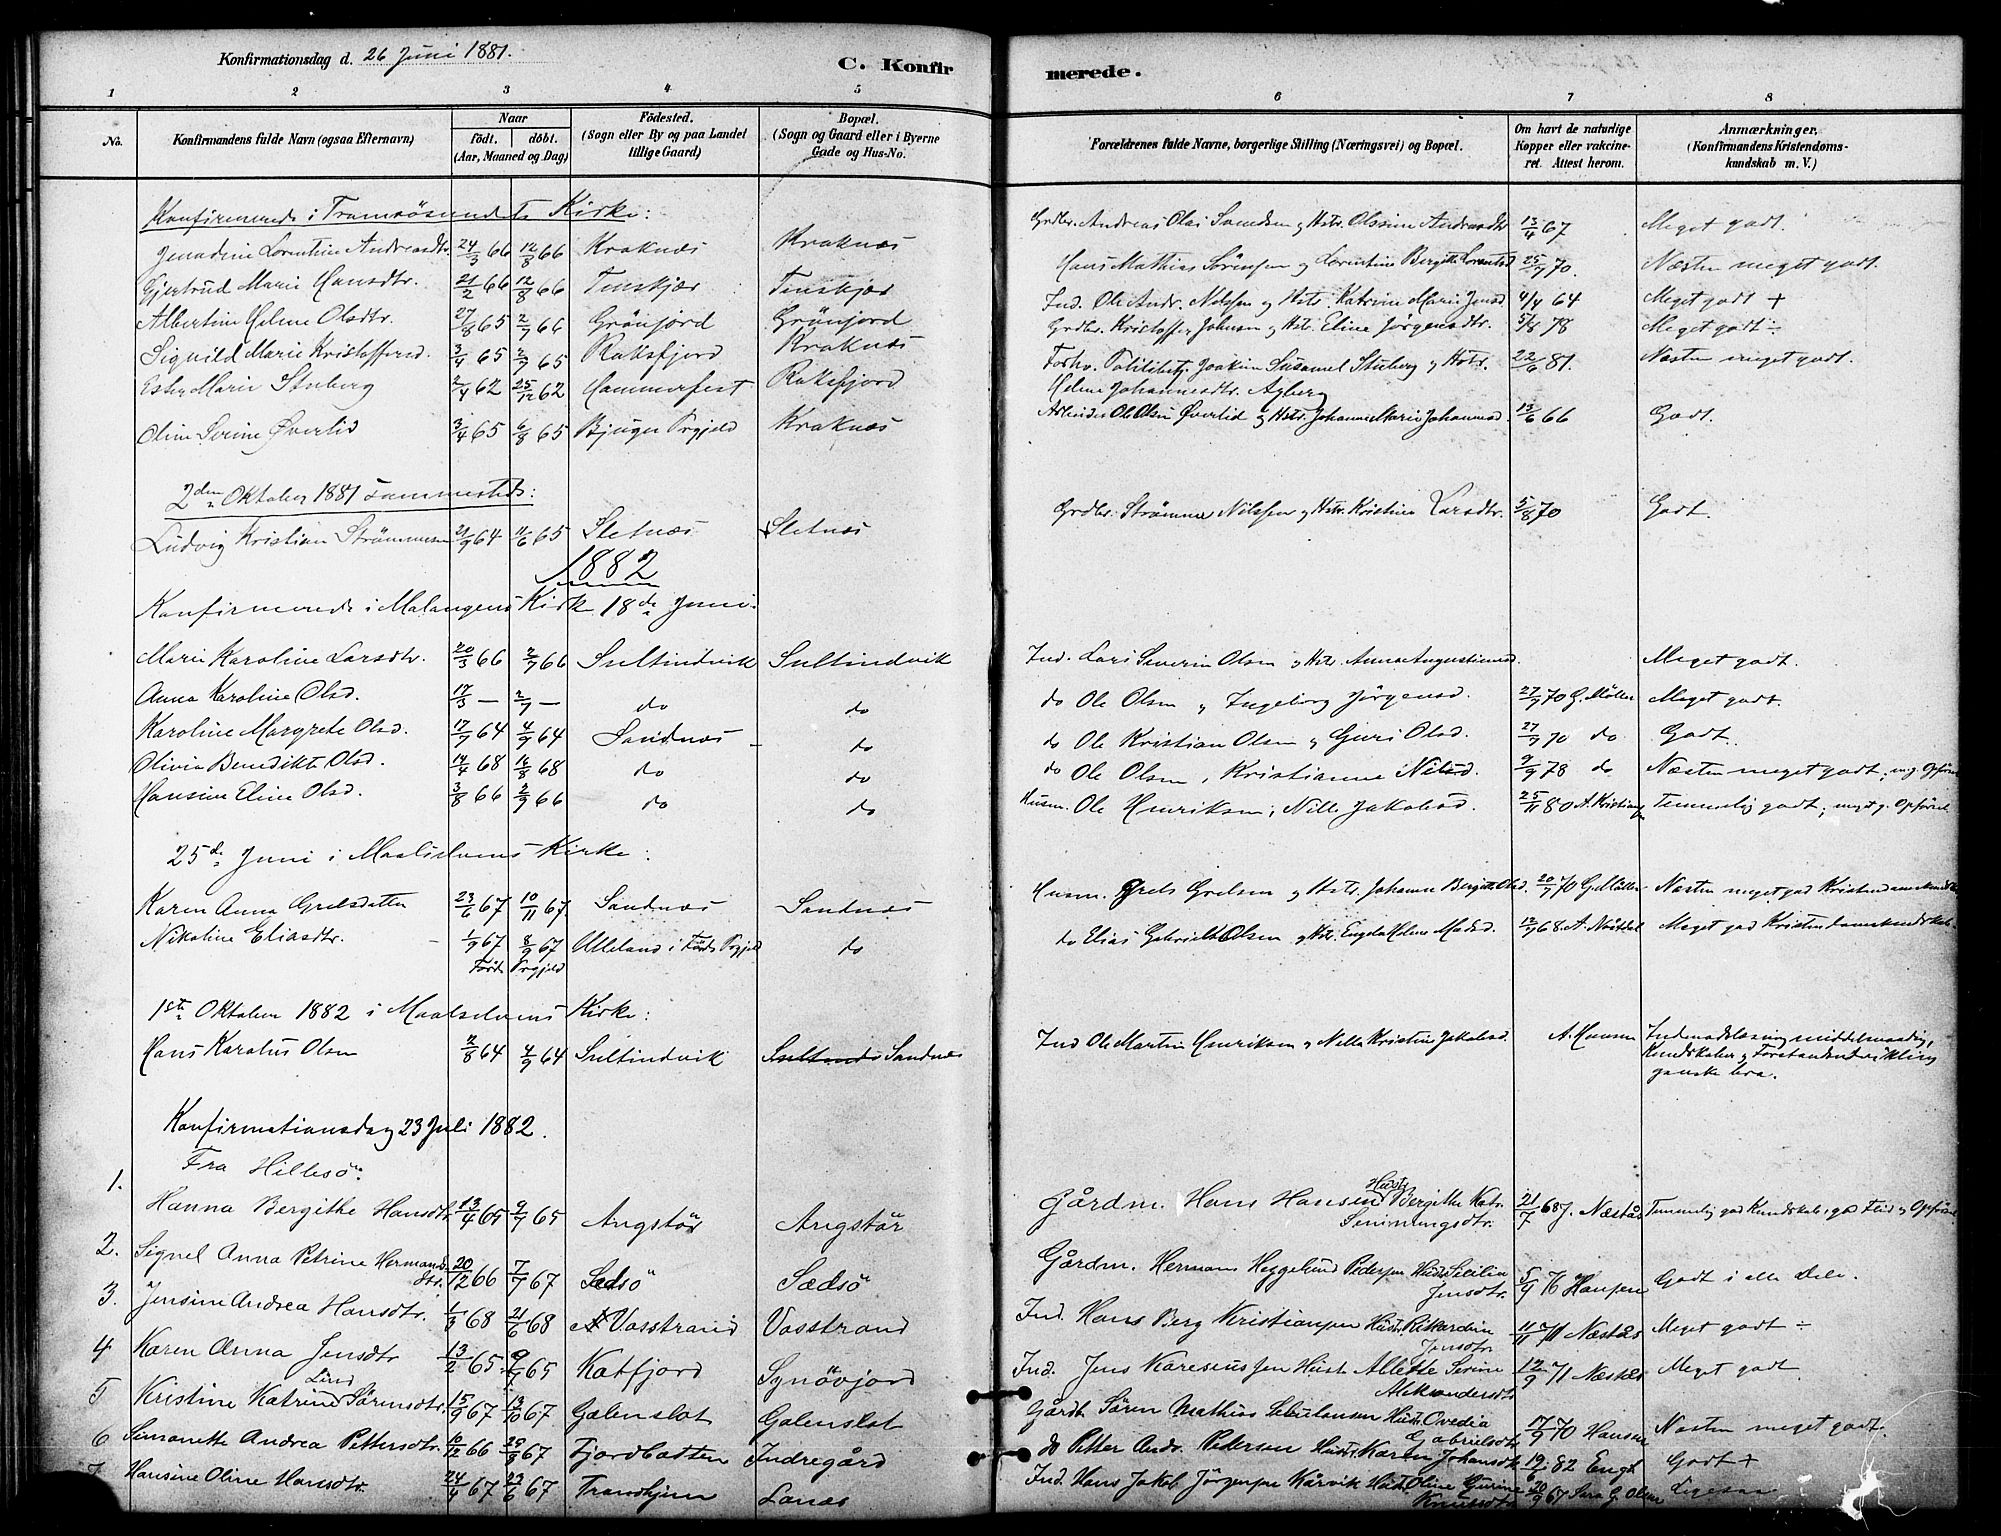 Konfirmationsdag d. 26 Juni 1881.
C. Konfirmerede.
1 2 3 4 5 6 7 8
No.
Konfirmandens fulde Navn (ogsaa Efternavn)
Naar
födt. döbt.
(Aar, Maaned og Dag)
Födested.
(Sogn eller By og paa Landet tillige Gaard)
Bopæl.
(Sogn og Gaard eller i Byerne Gade og Hus-No.
Forældrenes fulde Navne, borgerlige Stilling (Næringsvei) og Bopæl.
Om havt de naturlige Kopper eller vakcineret. Attest herom.
Anmærkninger.
(Konfirmandens Kristendomskundskab m. V.)
Konfirmerede i Tromsösundets Kirke:
Lorentine Andreasdtr. 24/3 66 12/8 66 Kraknæs Kraknæs Grdbr. Andreas Olai Svendsen og Hstr. Olsine Andreasdtr 13/4 67 Meget godt.
Gjertrud Marie Hansdtr. 21/2 66 12/8 66 Tenskjær Tenskjær Hans Mathias Sörensen og Lorentine Bergitte Lorentsd 25/7 70. Næsten meget godt.
Albertine Helene Olsdtr. 27/8 65 2/7 66 Grönjord Grönjord Ind. Ole Andr. Nilssen og Hstr. Katrine Marie Jensd 4/4 64 Meget godt +
Signild Marie Kristoffersd. 3/4 65 2/7 65 Rakfjord Kraknæs Grdbr. Kristoffer Johnsen og Hstr. Eline Jörgensdtr. 5/8 78 Meget godt ÷
Ester Marie Stuberg 2/4 62 25/12 62 Hammerfest Rakfjord Joakim Susamel Stuberg og Hstr. 22/6 81. Næsten meget godt.
Helene Johannesdtr. Agberg
Oline Serine Øverlid 3/4 65 6/8 65 Bjugn Prgjeld Kraknæs Arbeider Ole Olsen Øverlid og Hstr. Johanne Marie Johannesd. 13/6 66 Godt.
2den Oktober 1881 sammesteds:
Ludvig Kristian Strömmesen 21/9 64 11/6 65 Sletnæs Sletnæs Grdbr. Strömmer Nilssen og Hstr. Kristine Larsdtr. 5/8 70 Godt.
1882
Konfirmerede i Malangens Kirke 18de Juni.
Marie Karoline Larsdtr. 20/3 66 2/7 66 Sultindvik Sultindvik Ind. Lars Severin Olsen og Hstr. Anna Augustinusd. Meget godt.
Anna Karoline Olsd. 17/3 — 2/7 — do do do Ole Olsen og Ingeborg Jörgensd. 27/7 70 G. Möller Meget godt.
Karoline Margrete Olsd. 17/7 64 4/9 64 Sandnæs do do Ole Kristian Olsen og Guri Olsd. 27/7 70 do Godt.
Olivia Benedikte Olsd. 14/4 68 16/8 68 do do do Ole Olsen, Kristianne Nilsd. 9/9 78 do Næsten meget godt; m. g. Opförsel
Hansine Eline Olsd. 3/8 66 2/9 66 do do Husm. Ole Henriksen; Nille Jakobsd. 25/11 80 Temmelig godt; meget g. Opförsel
25de Juni i Maalselvens Kirke:
Karen Anna Grelsdatter 23/6 67 10/11 67 Sandnæs Sandnæs Husm. Grels Grelsen og Hstr. Johanne Bergitte Olsd. 20/7 70 G. Möller Næsten meget god Kristendomskundskab
Nikoline Eliasdtr. 1/9 67 8/9 67 Ulleland i Förde Prgjeld do do Elias Gabriel Olsen og Hstr. Engel Helene Madsd. 13/9 68 Meget god Kristendomskundskab
Förde Prgjeld
1ste Oktober 1882 i Maalselvens Kirke:
Hans Karolus Olsen 2/8 64 4/9 64 Sultindvik Sandnæs Ind Ole Martin Henriksen og Nella Kristine Jakobsd. A. Hansen Indenadslæsning middelmaadig,
Kundskaber og Forstandsudvikling
ganske bra.
Konfirmationsdag 23 Juli 1882.
Fra Hillesö:
1. Hanna Bergithe Hansdtr. 13/4 65 9/7 65 Angstör Angstör Gårdm. Hans Hansen Hustr. Bergithe Katr. Simmingsdtr. 21/7 68 J. Næstås Temmelig god Kundskab, god Flid og Opförsel
2. Signel Anna Petrine Hermandsdtr. 20/12 66 7/7 67 Sædsö Sædsö Gårdm. Hermans Heggelund Pedersen Hustr. Sililia Jensdtr. 5/9 76 Hansen Godt i alle Dele.
3. Jensine Andrea Hansdtr. 1/3 68 21/6 68 Vasstrand Vasstrand Ind. Hans Berg Kristiansen Hustr. Rikkardine Jensdtr. 11/11 71 Næstås Meget godt ÷
4 Karen Anna Jensdtr 13/2 65 9/7 65 Katfjord Synövjord Ind. Jens Kareliussen Hustr Allette Serine Aleksandersdtr 12/9 71 Næstås Meget godt
5 Kristine Katrine Lind Sörensdtr. 15/9 67 13/10 67 Galenslot Galenslot Gårdb. Sören Mathias Hustr. Ovedia Gabrielsdtr 17/9 70 Hansen Næsten meget godt.
6 Simonette Andrea Pettersdtr. 10/12 66 23/6 67 Fjordbotten Indregård do Petter Andr. Pedersen Hustr. Karen Johansdtr 19/6 82 Engh Godt +
7 Hansine Oline Hansdtr. 24/4 67 23/6 67 Tranhjem Lanæs Ind. Hans Jakob Jörgensen Kårvik Hustr. Oline Gurine Knutsdtr 20/9 67 Sara G. Olsen Ligesaa